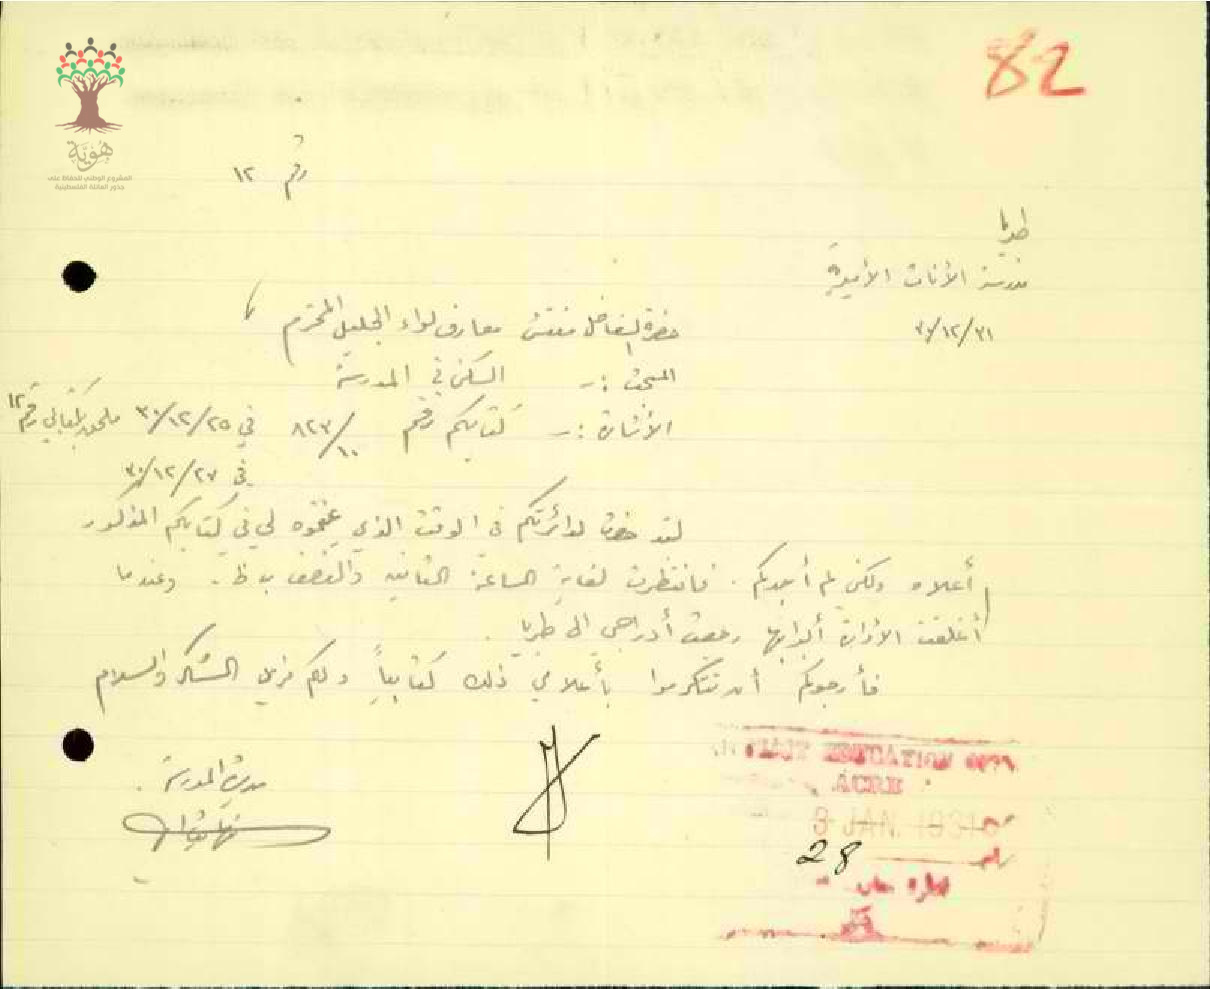 82
هُوِيَّة
المشروع الوطني للحفاظ على
جذور العائلة الفلسطينية
رقم ١٢
طبريا
مدرسة الأناث الأميرية
٣٠/١٢/٣١
حضرة الفاضل مفتش معارف لواء الجليل المحترم
المبحث :- السكن في المدرسة
الأشارة :- كتابكم رقم ٨٢٧/١٠ في ٣٠/١٢/٢٥ ملحق كتابي رقم ١٢
في ٣٠/١٢/٢٧
لقد حضرت لدائرتكم في الوقت الذي عينتموه لي في كتابكم المذكور
أعلاه ولكن لم أجدكم . فانتظرت لغاية الساعة الثانية والنصف ب ظ . وعندما
أغلقت الادارة أبوابها رجعت أدراجي الى طبريا .
فأرجوكم أن تتكرموا بأعلامي ذلك كتابياً ولكم مزيد الشكر والسلام
مديرة المدرسة
EDUCATION
ACRE
3 JAN. 1931
28